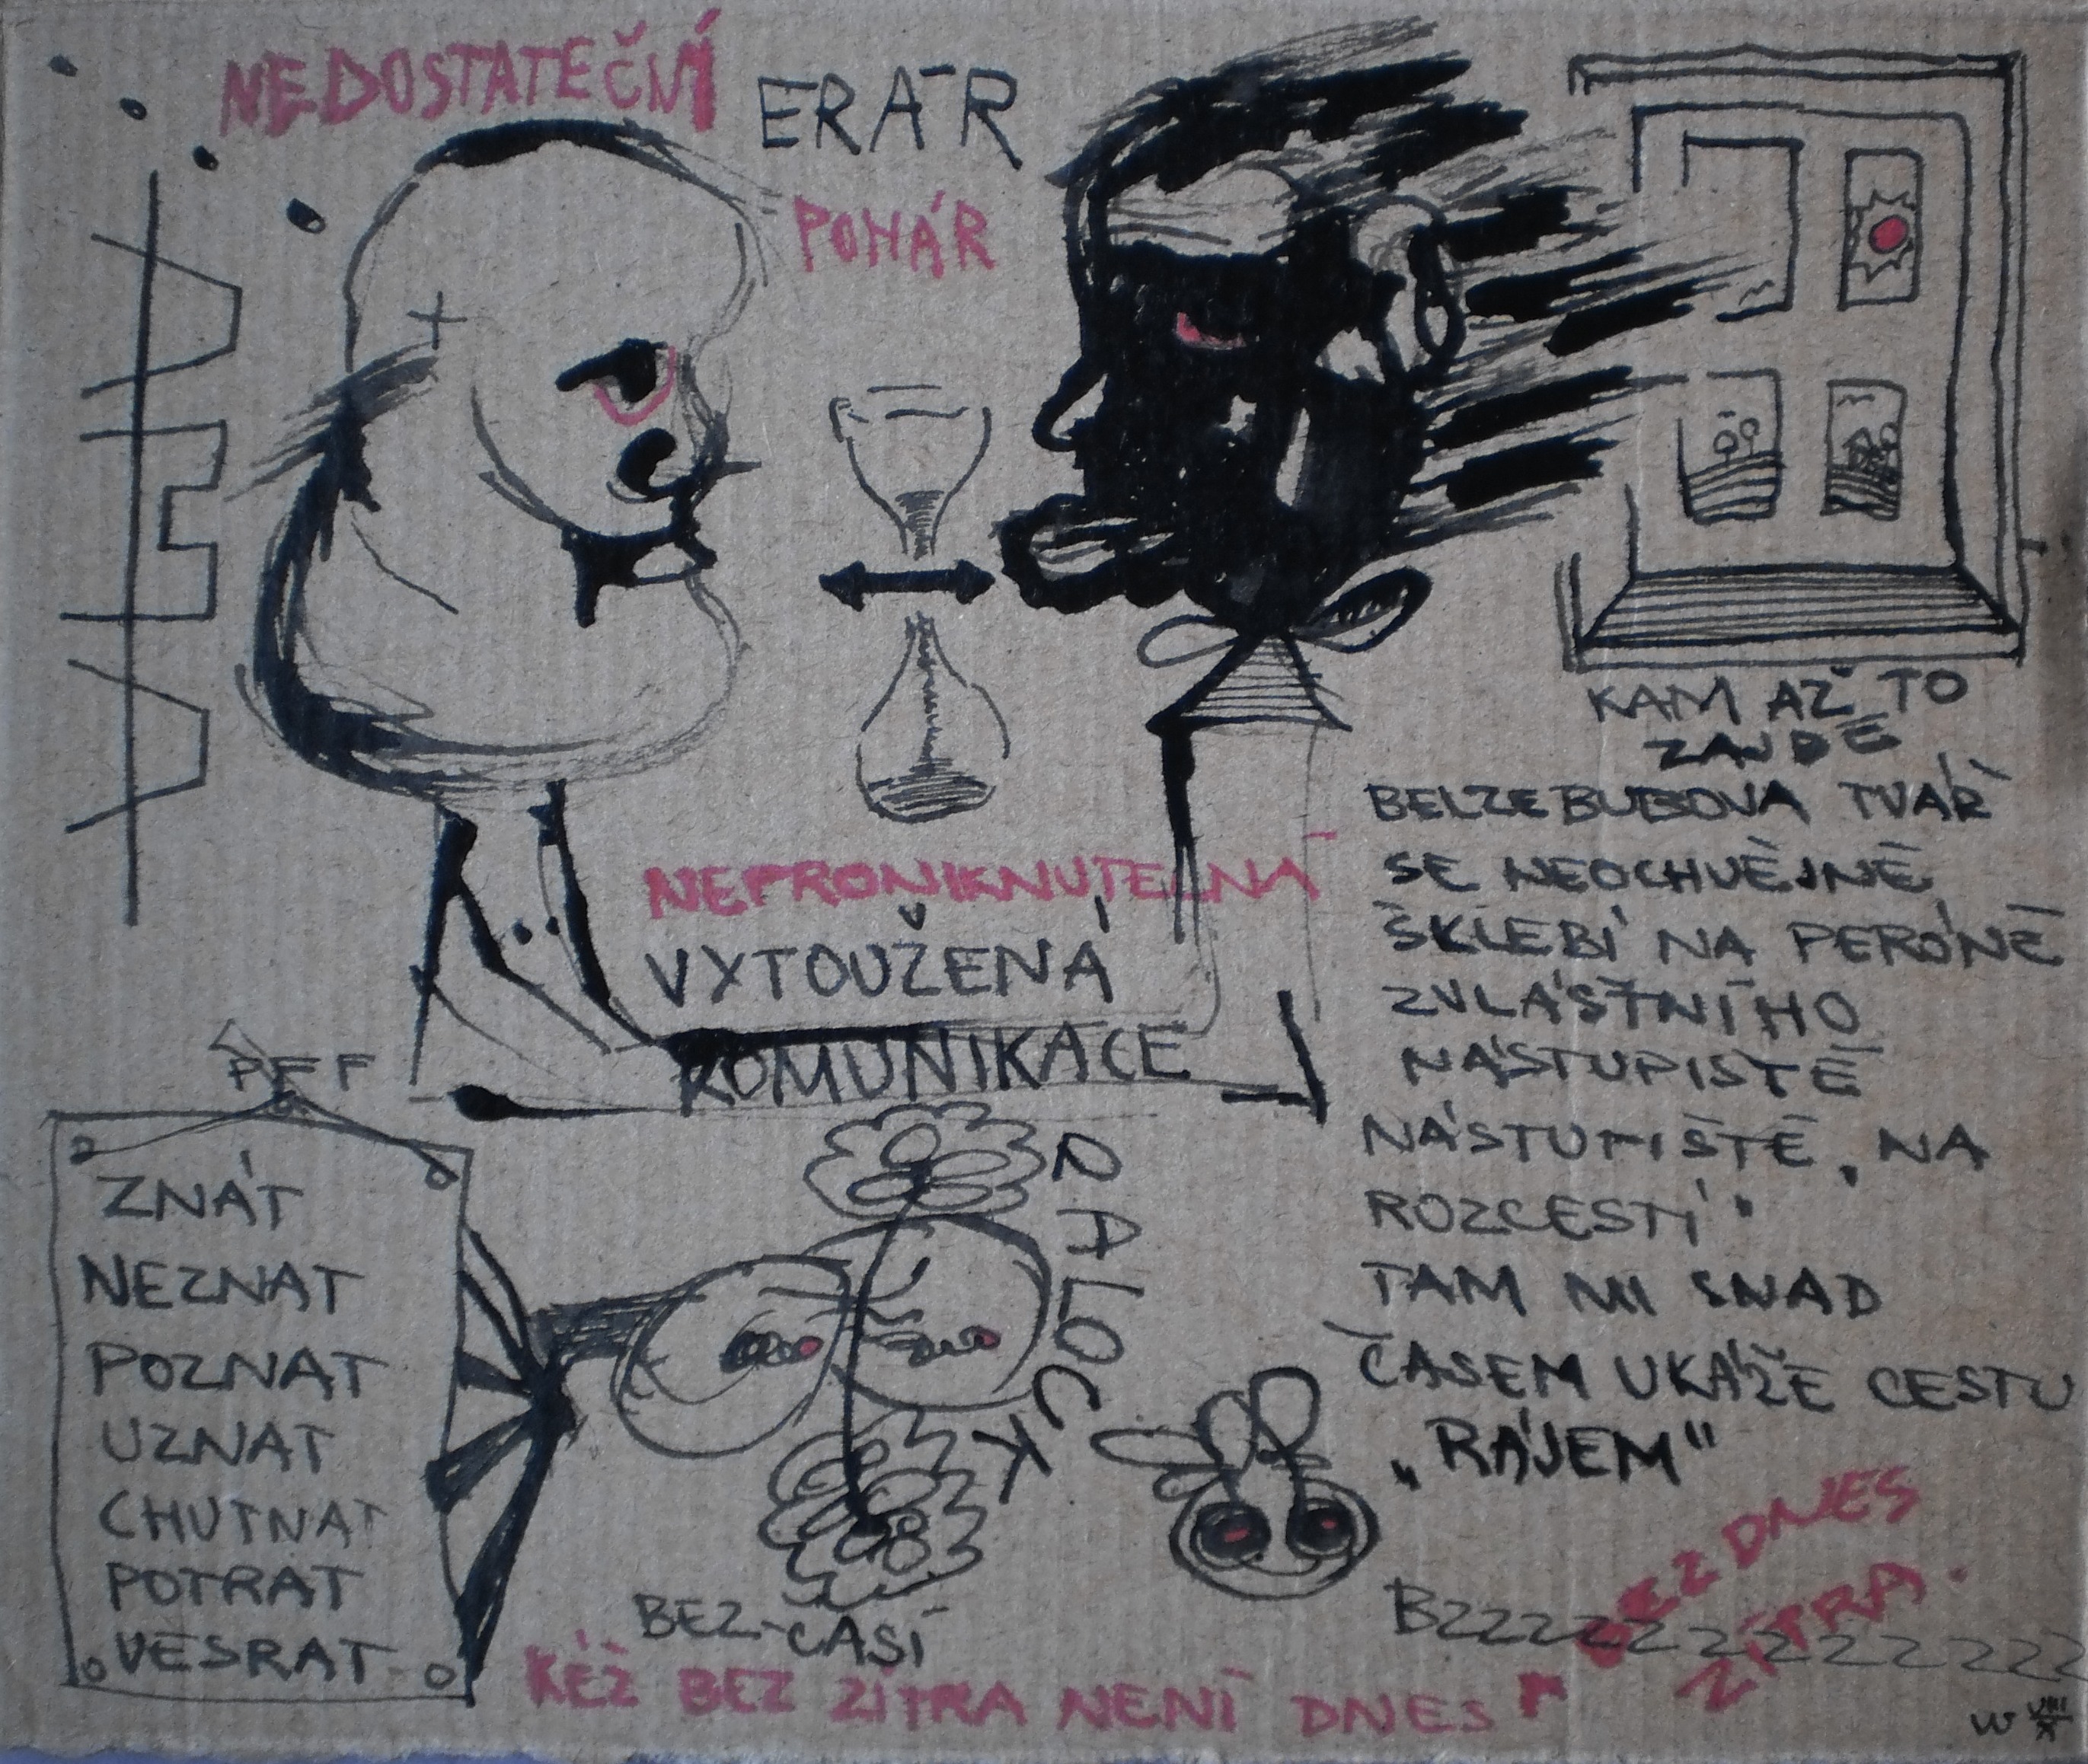 NEDOSTATEČNÍ
ERÁR
POHÁR
KAM AŽ TO
ZAJDE
BELZEBUBOVA TVÁŘ
SE NEOCHVĚJNĚ
ŠKLEBÍ NA PERÓNĚ
ZVLÁŠTNÍHO
NÁSTUPIŠTĚ
NÁSTUPIŠTĚ „NA
ROZCESTÍ"
TAM MI SNAD
ČASEM UKÁŽE CESTU
„RÁJEM"
NEPRONIKNUTELNÁ
VYTOUŽENÁ
KOMUNIKACE
PFF
ZNÁT
NEZNAT
POZNAT
UZNAT
CHUTNAT
POTRAT
VESRAT
BEZ-ČASÍ
BZZZZZZZZZZZZZZ
KÉŽ BEZ ZÍTRA NENÍ DNES
BEZ DNES
ZÍTRA.
W VIII
X